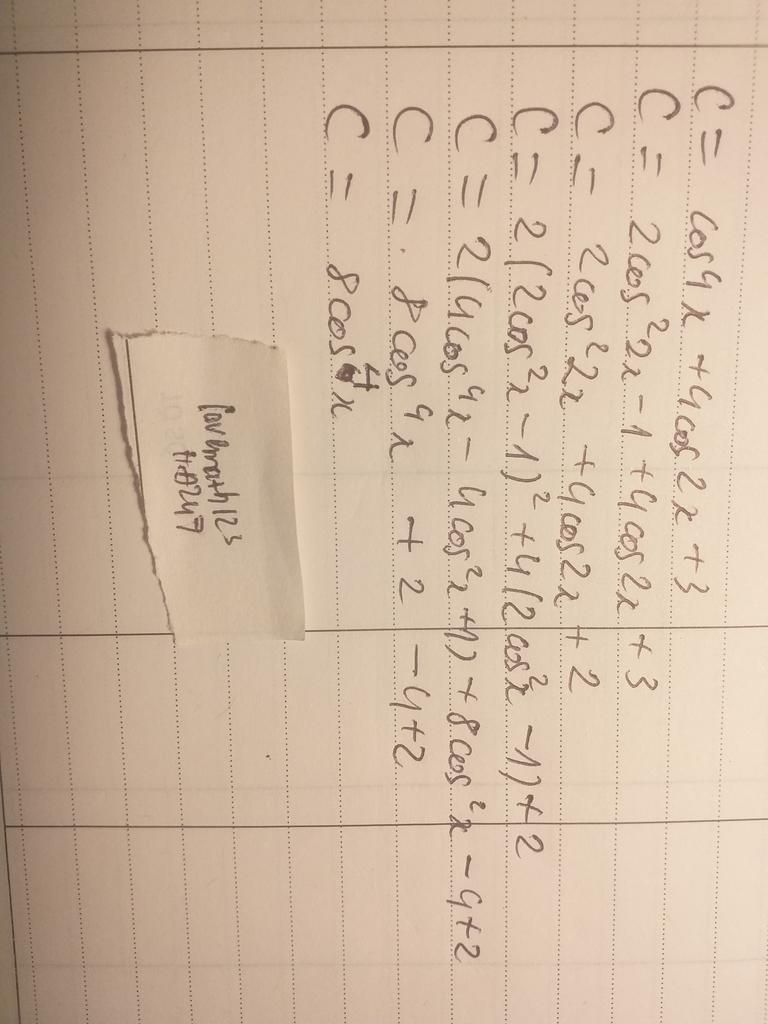 C = cos4x + 4cos2x + 3
C = 2cos²2x - 1 + 4cos2x + 3
C = 2cos²2x + 4cos2x + 2
C = 2(2cos²x - 1)² + 4(2cos²x - 1) + 2
C = 2(4cos⁴x - 4cos²x + 1) + 8cos²x - 4 + 2
C = 8cos⁴x + 2 - 4 + 2
C = 8cos⁴x
lovemath123